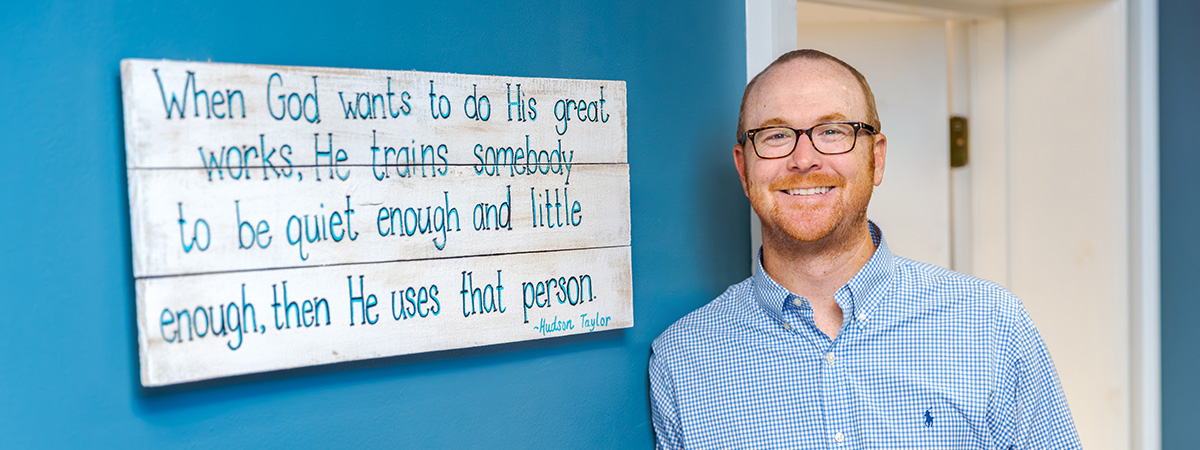 When God wants to do His great
works, He trains somebody
to be quiet enough and little
enough, then He uses that person.
~Hudson Taylor